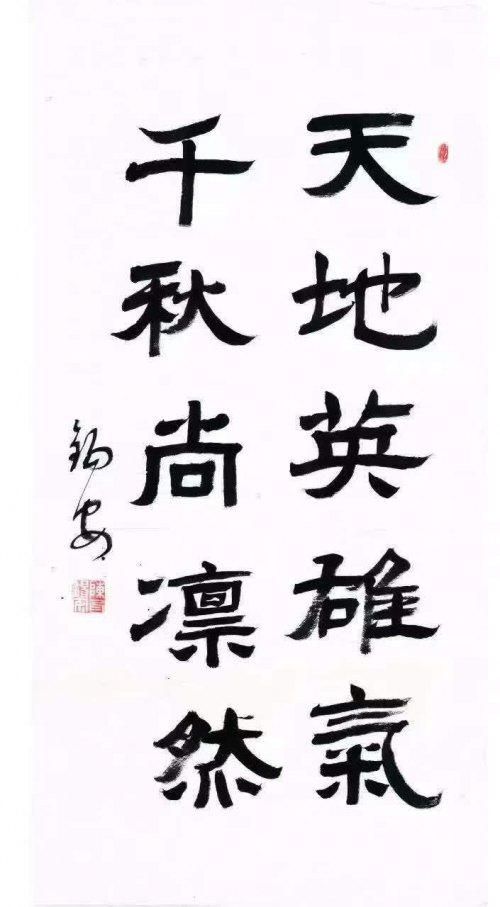 天地英雄氣
千秋尚凛然
錫安